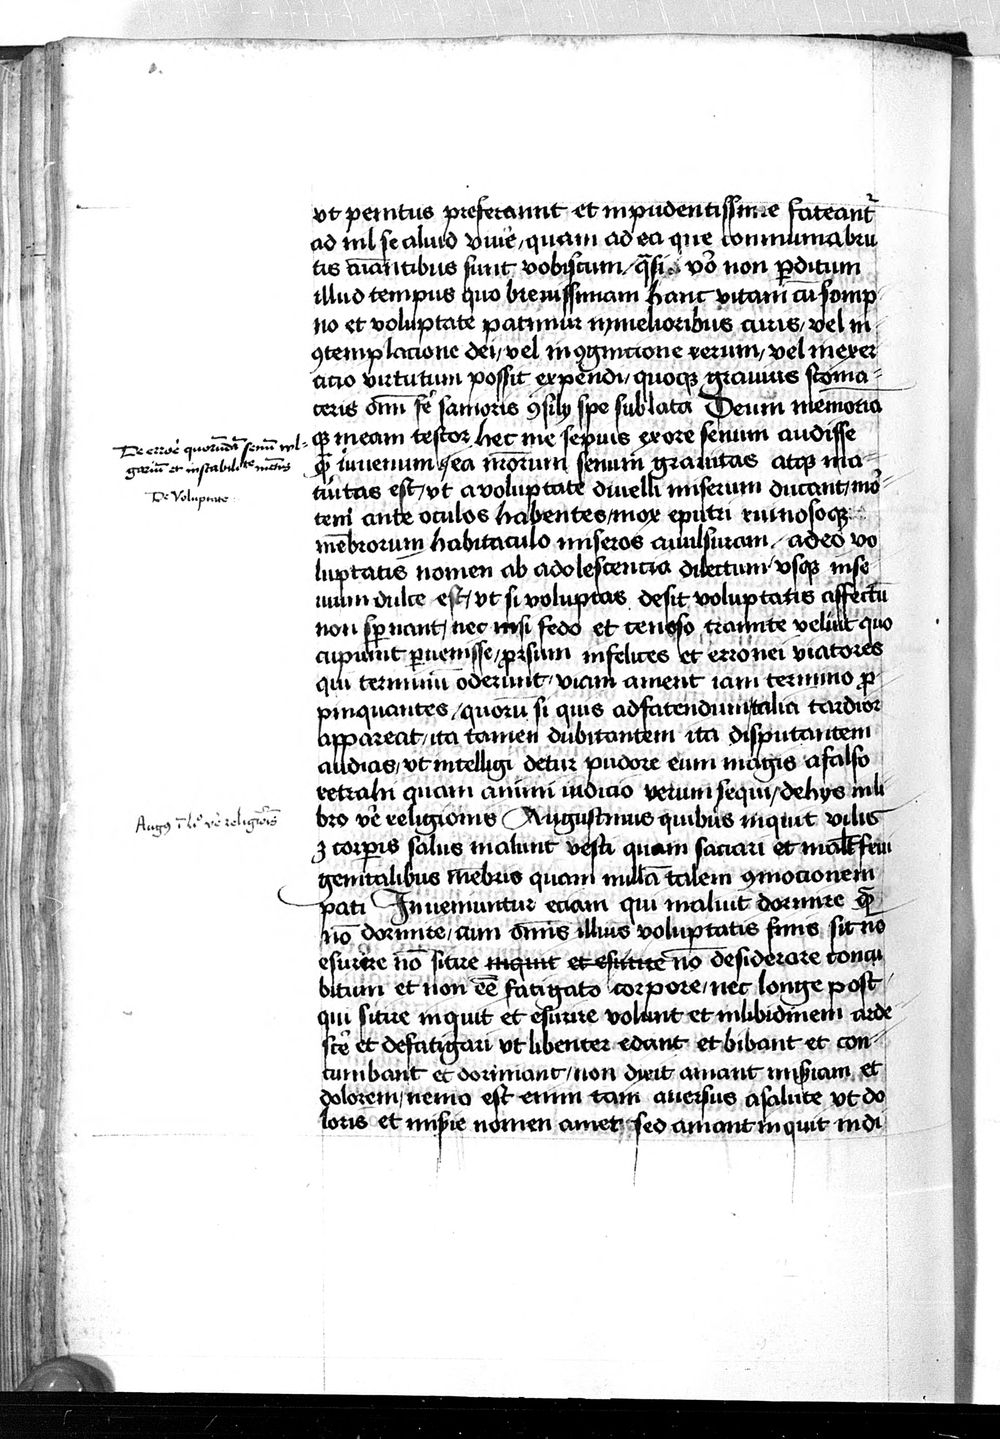 vt penitus preferannt et inpudentissime fateantʳ
ad nil se aliud viuẽ / quam ad ea que communia bru
tis aīantibus sunt vobiscum / q̃si vo᷎ non ꝑditum
illud tempus quo breuissimam hanc vitam cū somp
no et voluptate patimur in melioribus curis / vel in
ꝯtemplacione dei / vel in ꝯgnicione rerum / vel in exer
citio virtutum possit expendi / quoqꝫ grauius stoma-
ceris om̄ fẽ sanioris ꝯsilij spe sublata Deum memoria
qꝫ meam testor hec me sepius ex ore senum audisse
q̄ iuuenum / ea nr̄orum senum grauitas atqꝫ ma-
turitas est / vt a voluptate diuelli miserum ducant / mo᷎
tem ante oculos habentes / mox e putri ruinosoqꝫ
mēbrorum habitaculo miseros auulsuram / adeo vo
luptatis nomen ab adolescencia dilectum vsqꝫ in se
nium dulce est / vt si voluptas desit voluptatis affectū
non sꝑnant / nec nisi fedo et cenoso tramite velint quo
cupiunt ꝑuenisse / ꝓrsum infelices et erronei viatores
qui terminū oderunt / viam ament iam termino ꝓ
pinquantes / quorū si quis ad fatendum talia tardior
appareat / ita tamen dubitantem ita disputantem
audias / vt intelligi detur pudore eum magis a falso
retrahi quam animi iudicio verum sequi / de hys in li
bro vẽ religionis Augustinus quibus inquit vilis
ꝫ corꝑis salus malunt vesci quam saciari et malūt frui
genitalibus mēbris quam nullā talem ꝯmocionem
pati Inueniuntur eciam qui maluit dormire q̄
nō dormire / cum om̄is illius voluptatis finis sit nō
esurire nō sitire inquit et esurire nō desiderare concu
bitum et non eē fatigato corpore / nec longe post
qui sitire inquit et esurire volunt et in libidinem arde
scẽ et defatigari vt libenter edant et bibant et con-
cumbant et dormiant / non dixit amant misꝑiam et
dolorem / nemo est enim tam auersus a salute vt do
loris et misꝑie nomen amet sed amant inquit indi
De errorẽ quorundā senū vul-
gariū et instabilitate mentis
De Voluptate
Augꝯ ī liº vẽ religiōis